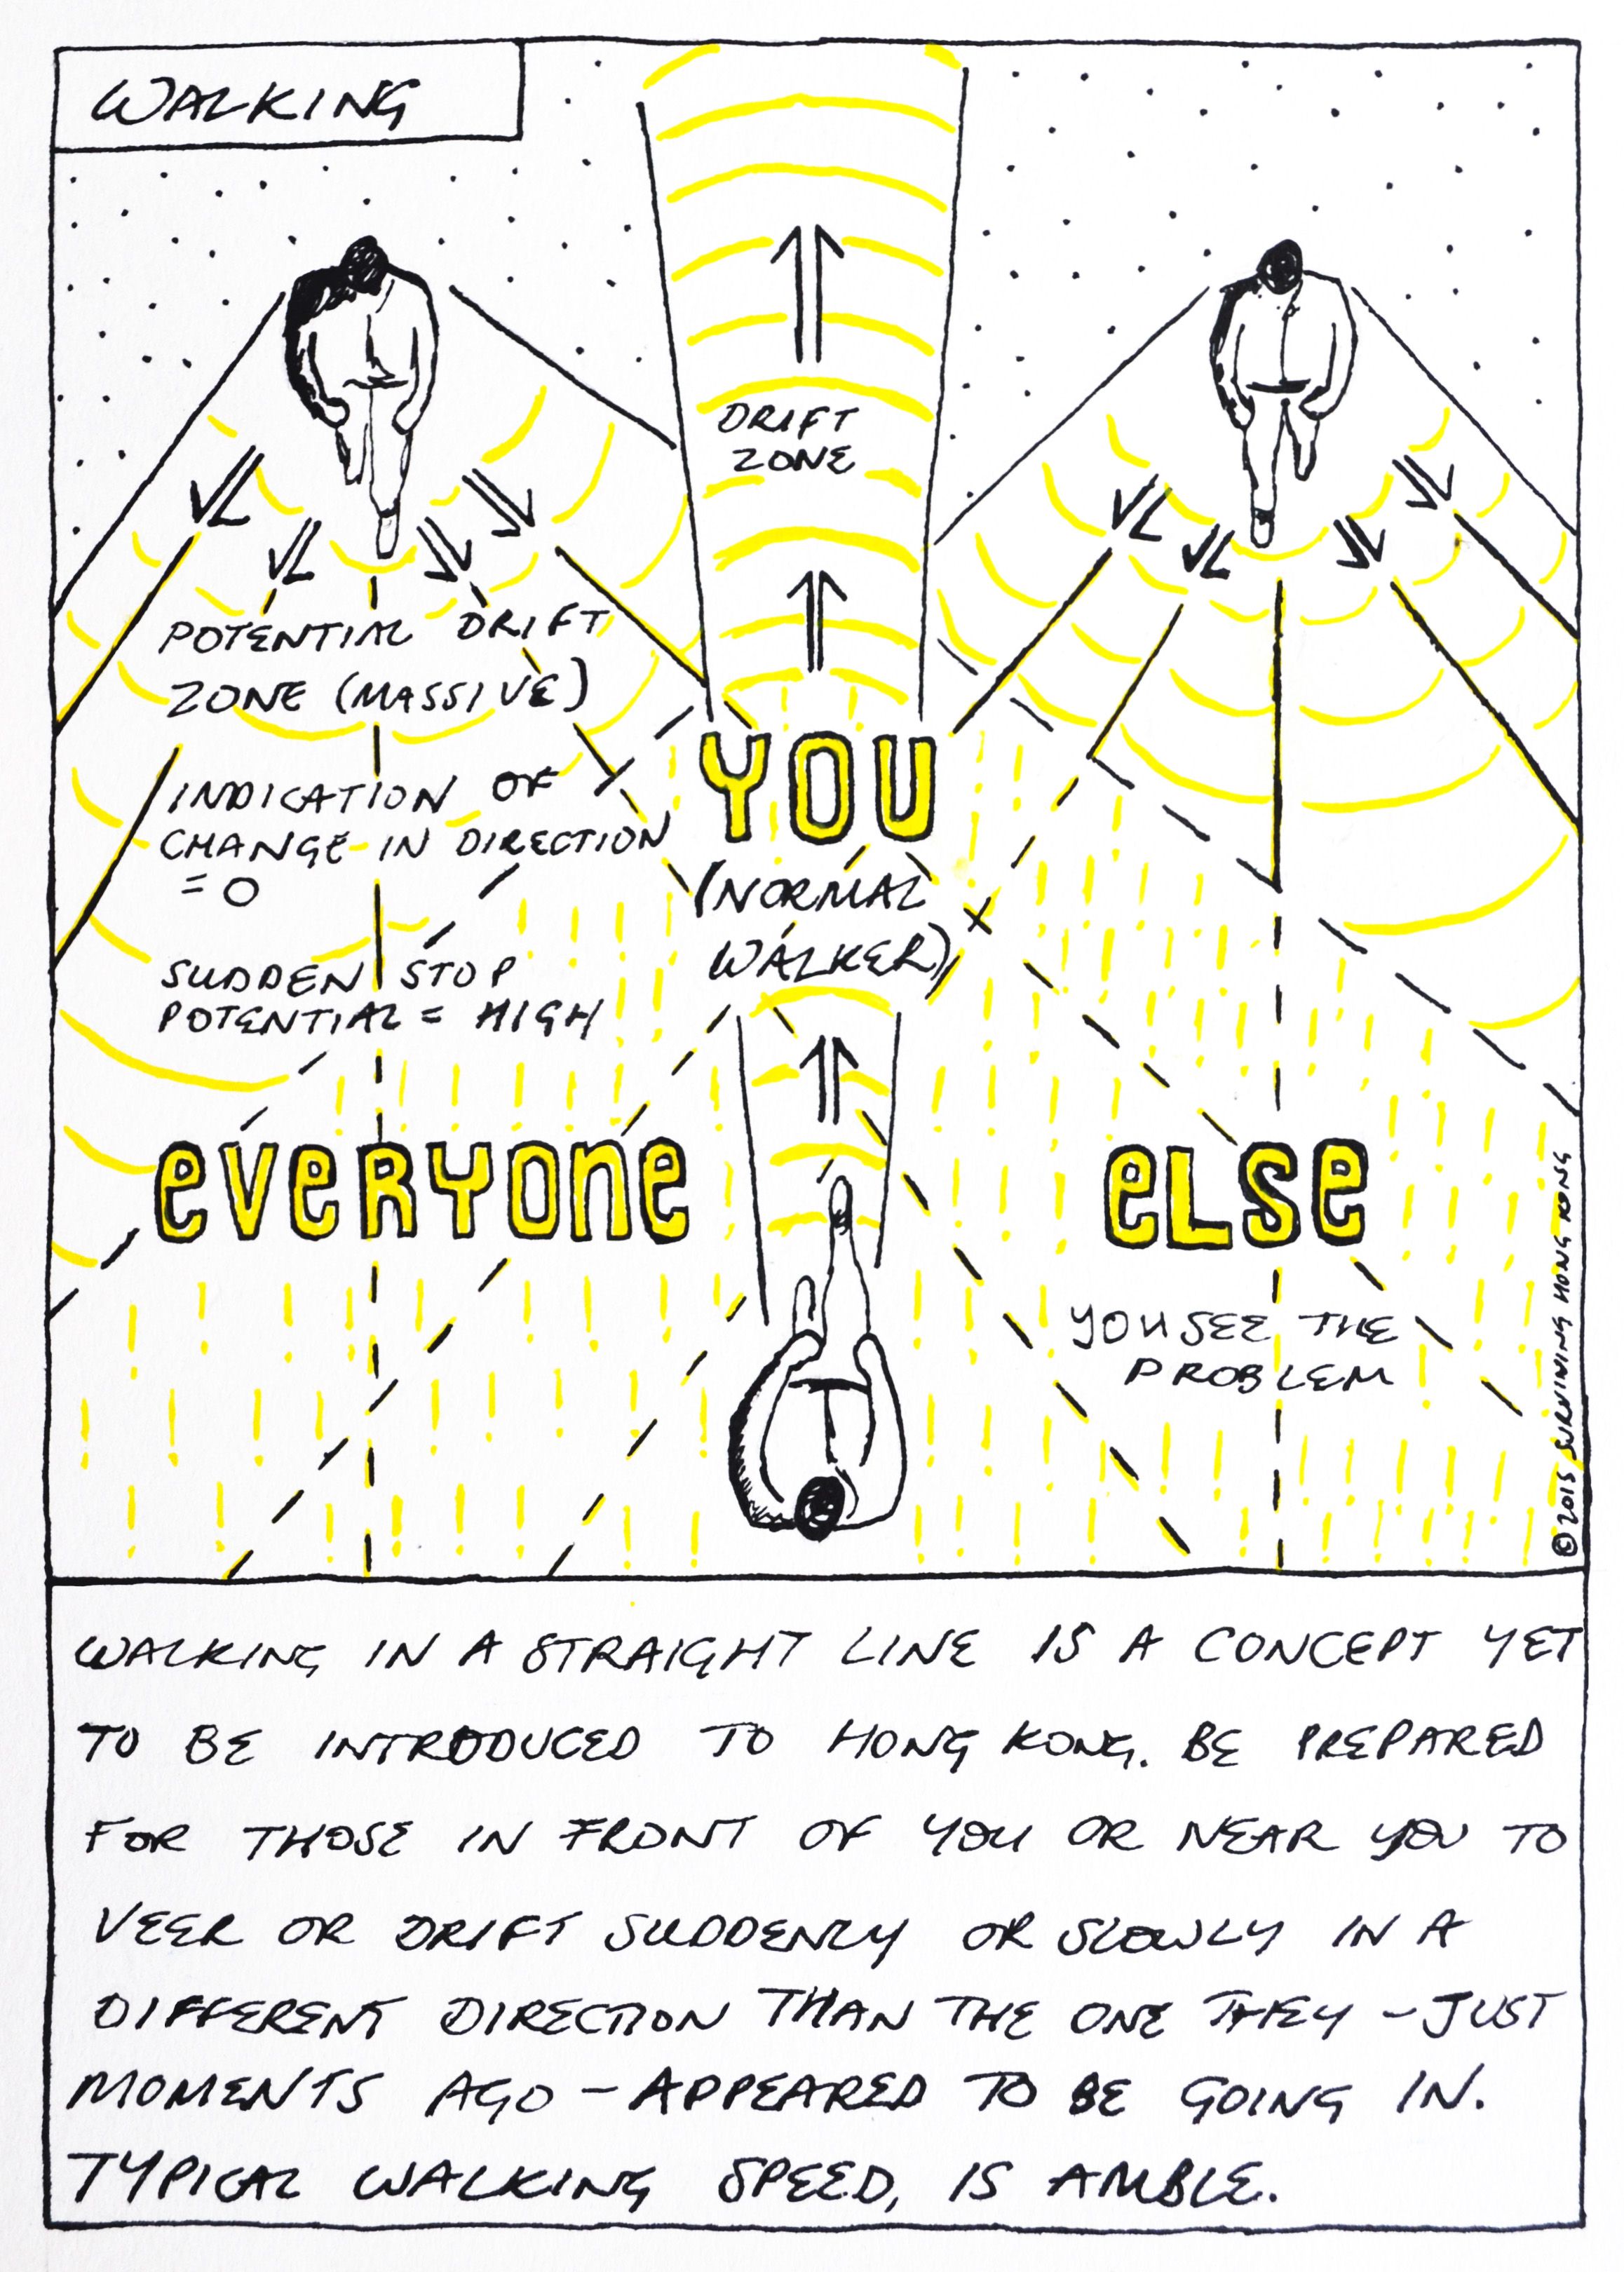 WALKING
DRIFT
ZONE
POTENTIAL DRIFT
ZONE (MASSIVE)
INDICATION OF
CHANGE IN DIRECTION
= 0
SUDDEN STOP
POTENTIAL = HIGH
YOU
(NORMAL
WALKER)
eveRYone
eLSe
YOU SEE THE
PROBLEM
© 2015 SURVIVING HONG KONG
WALKING IN A STRAIGHT LINE IS A CONCEPT YET
TO BE INTRODUCED TO HONG KONG. BE PREPARED
FOR THOSE IN FRONT OF YOU OR NEAR YOU TO
VEER OR DRIFT SUDDENLY OR SLOWLY IN A
DIFFERENT DIRECTION THAN THE ONE THEY – JUST
MOMENTS AGO – APPEARED TO BE GOING IN.
TYPICAL WALKING SPEED, IS AMBLE.